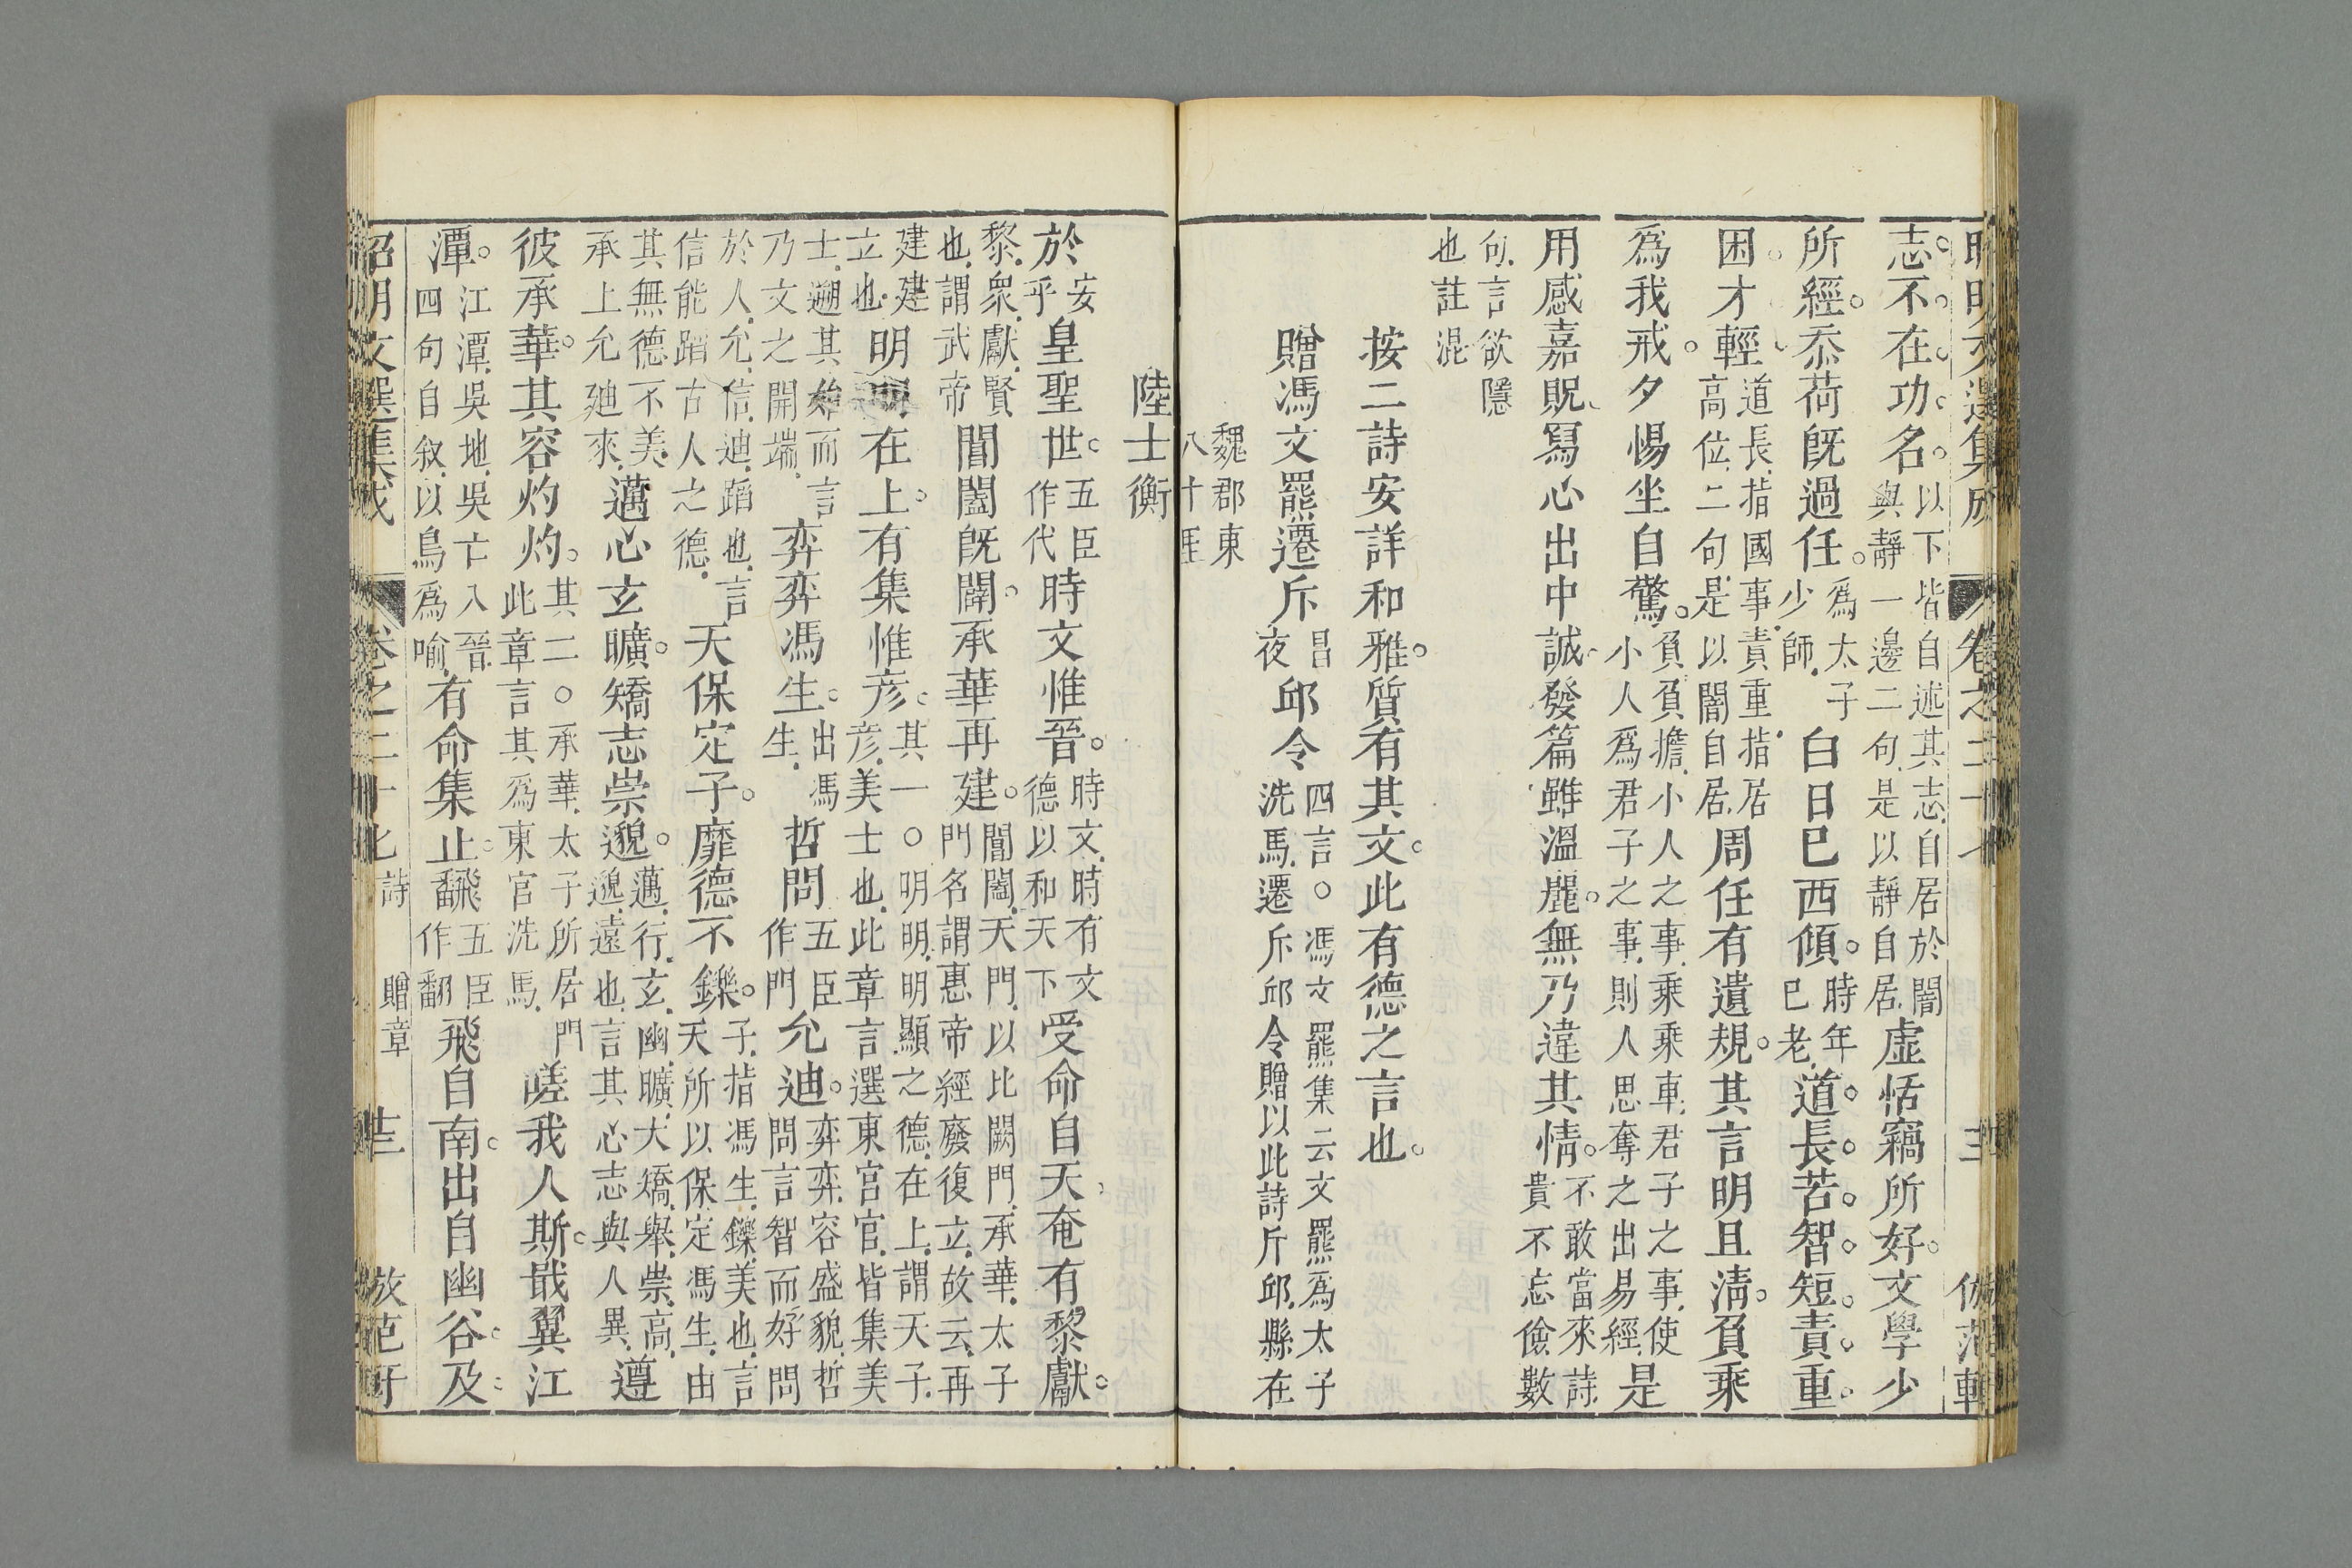 昭明文選集成 卷之二十七 三 倣范軒
志不在功名以下皆自述其志自居於闇與靜一邊二句是以靜自居虛恬竊所好文學少
所經忝荷旣過任為太子少師白日巳西傾時年巳老道長苦智短責重
困才輕道長指國事責重指居高位二句是以闇自居周任有遺規其言明且淸負乘
爲我戒夕惕坐自驚負負擔小人之事乘乘車君子之事使小人爲君子之事則人思奪之出易經是
用感嘉貺寫心出中誠發篇雖溫麗無乃違其情不敢當來詩貴不忘儉數
句言欲隱也註混
按二詩安詳和雅質有其文此有德之言也
贈馮文羆遷斥邱令四言○馮文羆集云文羆爲太子洗馬遷斥邱令贈以此詩斥邱縣在
魏郡東八十里
陸士衡
於安乎皇聖世五臣作代時文惟晉時文時有文德以和天下受命自天奄有黎獻
黎衆獻賢也謂武帝閶闔旣闢承華再建閶闔天門以比闕門承華太子門名謂惠帝經廢復立故云再
建建立也明明在上有集惟彥其一○明明明顯之德在上謂天子彥美士也此章言選東宮官皆集美
士遡其始而言乃文之開端弈弈馮生出馮生哲問五臣作門允迪弈弈容盛貌哲問言智而好問
於人允信迪蹈也言信能蹈古人之德天保定子靡德不鑠子指馮生鑠美也言天所以保定馮生由
其無德不美承上允迪來邁心玄曠矯志崇邈邁行玄幽曠大矯舉崇高邈遠也言其心志與人異遵
彼承華其容灼灼其二○承華太子所居門此章言其爲東宮洗馬嗟我人斯戢翼江
潭江潭吳地吳亡入晉四句自叙以鳥爲喻有命集止翻五臣作飜飛自南出自幽谷及
昭明文選集成 卷之二十七 詩 贈章 十三 倣范軒